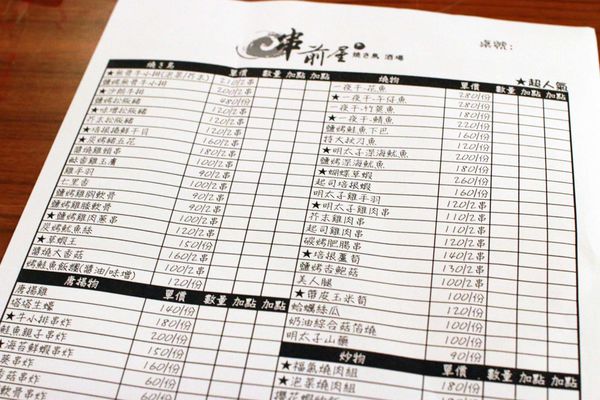 串前屋 燒き鳥 酒場
桌號：
★超人氣
燒き鳥 單價 數量 加點 加點
★無骨牛小排(泡菜/芥末) 210/2串
鹽烤無骨牛小排 200/2串
★沙朗牛排
鹽烤松阪豬
★味噌松阪豬 120/2串
芥末松阪豬 120/2串
★培根捲鮮干貝
★炭烤豬五花 160/2串
醬燒雞腿串
酥香雞玉膚 100/2串
雞羊羽
七里香 100/2串
鹽烤雞胸軟骨 90/2串
鹽烤雞膝軟骨 90/2串
★鹽烤雞肉蔥串 100/2串
炭烤魷魚絲 120/2串
★草蝦王 150/份
醬燒大香菇 160/2串
烤鮭魚飯糰(醬油/味增) 120/份
唐揚物 單價 數量 加點 加點
唐揚雞 140/份
塔塔生蠔 180/份
★牛小排串炸 200/份
鮭魚親子串炸 150/份
★海苔鮮蝦串炸 160/份
菜串炸 60/份
香菇串炸 60/份
燒物 單價 數量 加點 加點
一夜干-花魚 280/份
★一夜干-午仔魚 280/份
一夜干-竹筴魚 180/份
★一夜干-鯖魚
鹽烤鮭魚下巴 160/份
特大秋刀魚
★明太子深海魷魚 200/份
鹽烤深海魷魚 180/份
★蝴蝶草蝦 160/份
起司培根蝦 160/份
明太子雞羊羽
★明太子雞肉串 110/2串
芥末雞肉串 110/2串
起司雞肉串 110/2串
碳烤肥腸串 120/2串
★培根蘆筍 140/2串
鹽烤杏鮑菇 130/份
美人腿 100/份
★帶皮玉米筍 100/份
蛤蠣絲瓜 120/份
奶油綜合菇箔燒 100/份
明太子山藥 90/份
炒物 單價 數量 加點 加點
★福氣燒肉組 180/份
★泡菜燒肉組